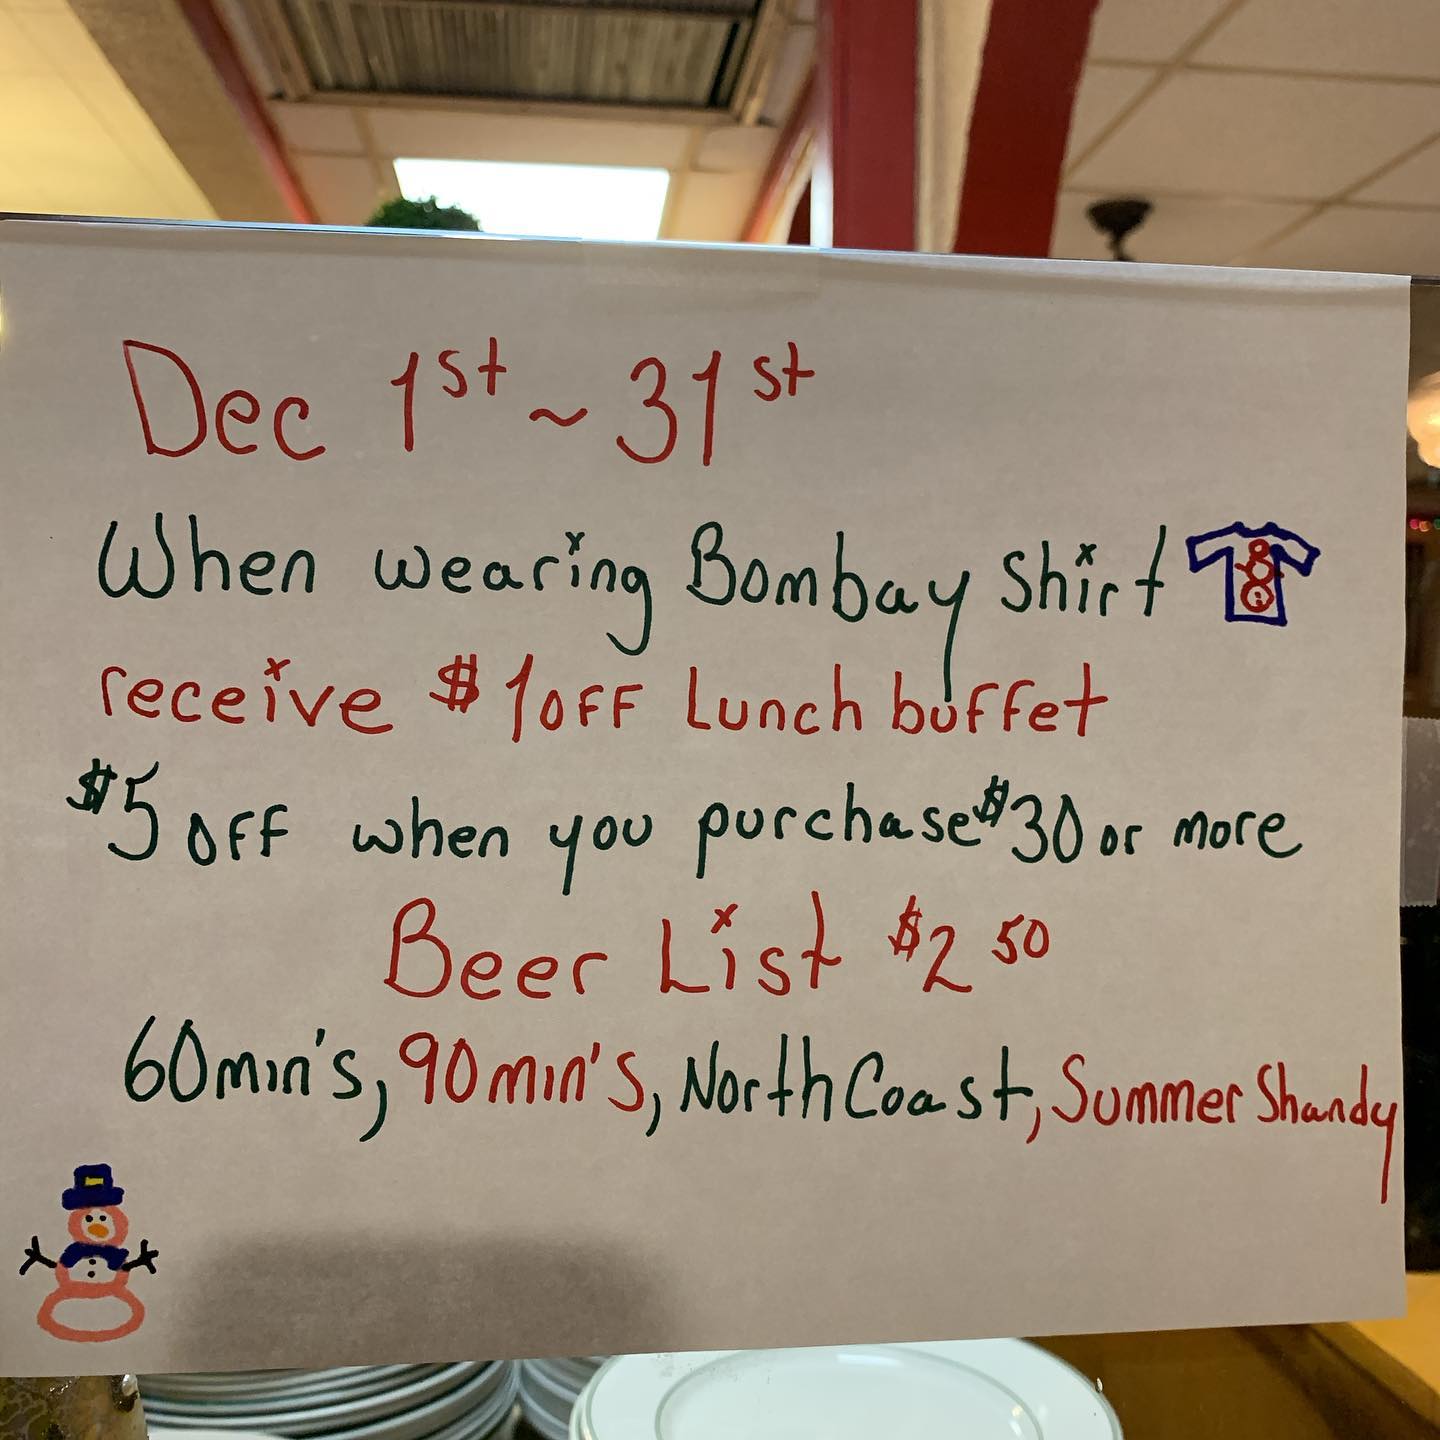 Dec 1st ~ 31st
When wearing Bombay Shirt
receive $1 OFF Lunch buffet
$5 OFF when you purchase $30 or more
Beer List $2 50
60min's, 90min's, North Coast, Summer Shandy